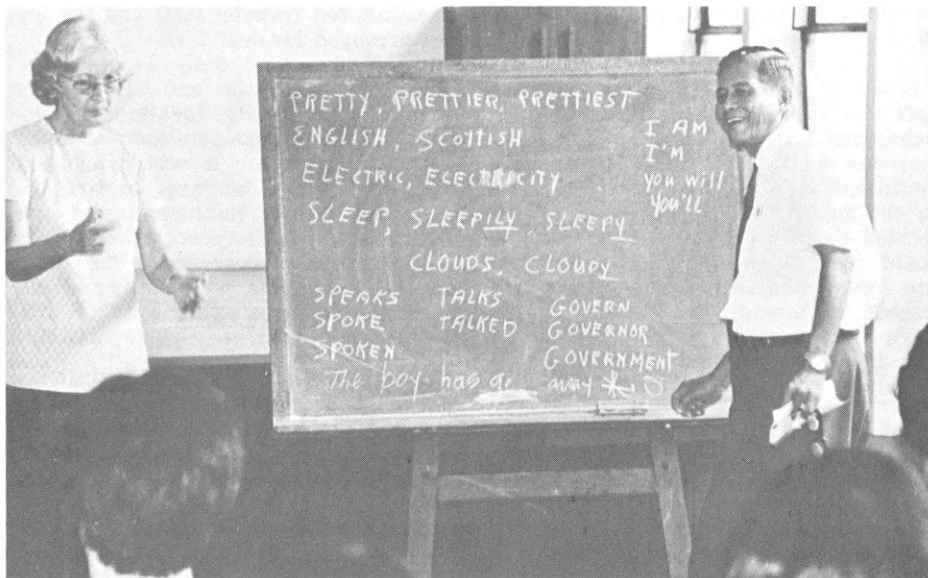 PRETTY, PRETTIER, PRETTIEST
ENGLISH, SCOTTISH
ELECTRIC, ELECTRICITY
SLEEP, SLEEPILY, SLEEPY
CLOUDS, CLOUDY
I AM
I'M
you will
You'll
SPEAKS
SPOKE
SPOKEN
TALKS
TALKED
GOVERN
GOVERNOR
GOVERNMENT
The boy has go away